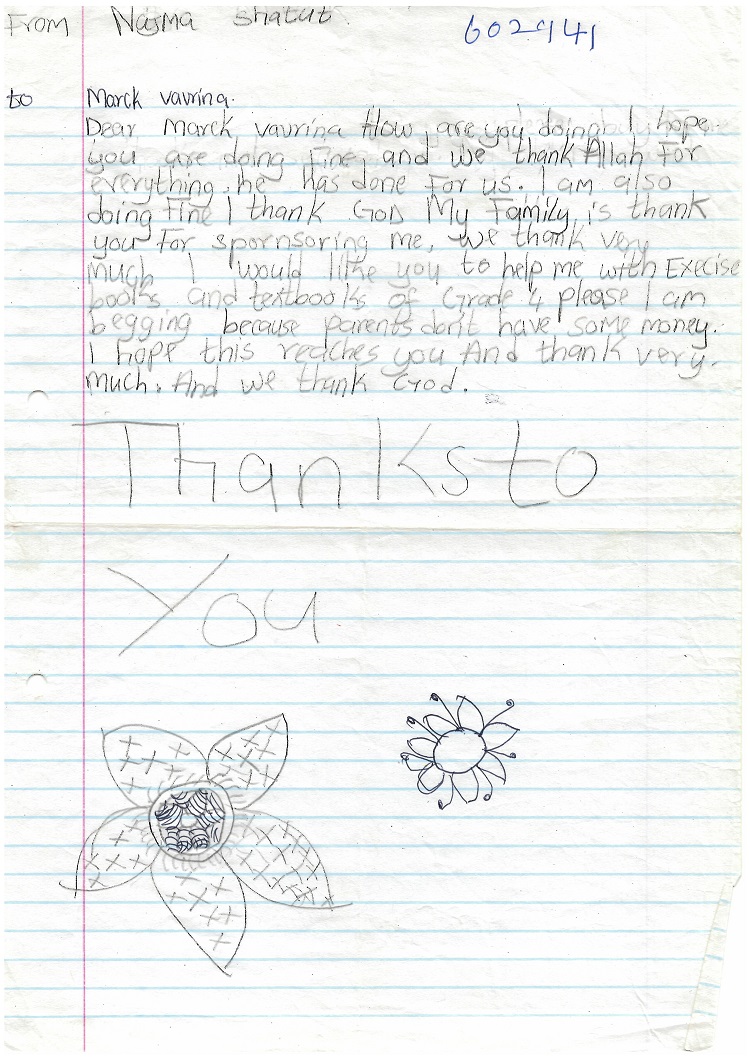 From Najma shatut
602941
to Marck vavrina.
Dear Marck vavrina How are you doing I hope
you are doing fine and we thank Allah For
everything he has done For us. I am also
doing Fine I thank God My Family is thank
you For spornsoring me, we thank very
much I would like you to help me with Execise
books and textbooks of Grade 4 please I am
begging because parents don't have some money.
I hope this reaches you And thank very.
much. And we thank God.
Thanks to
You